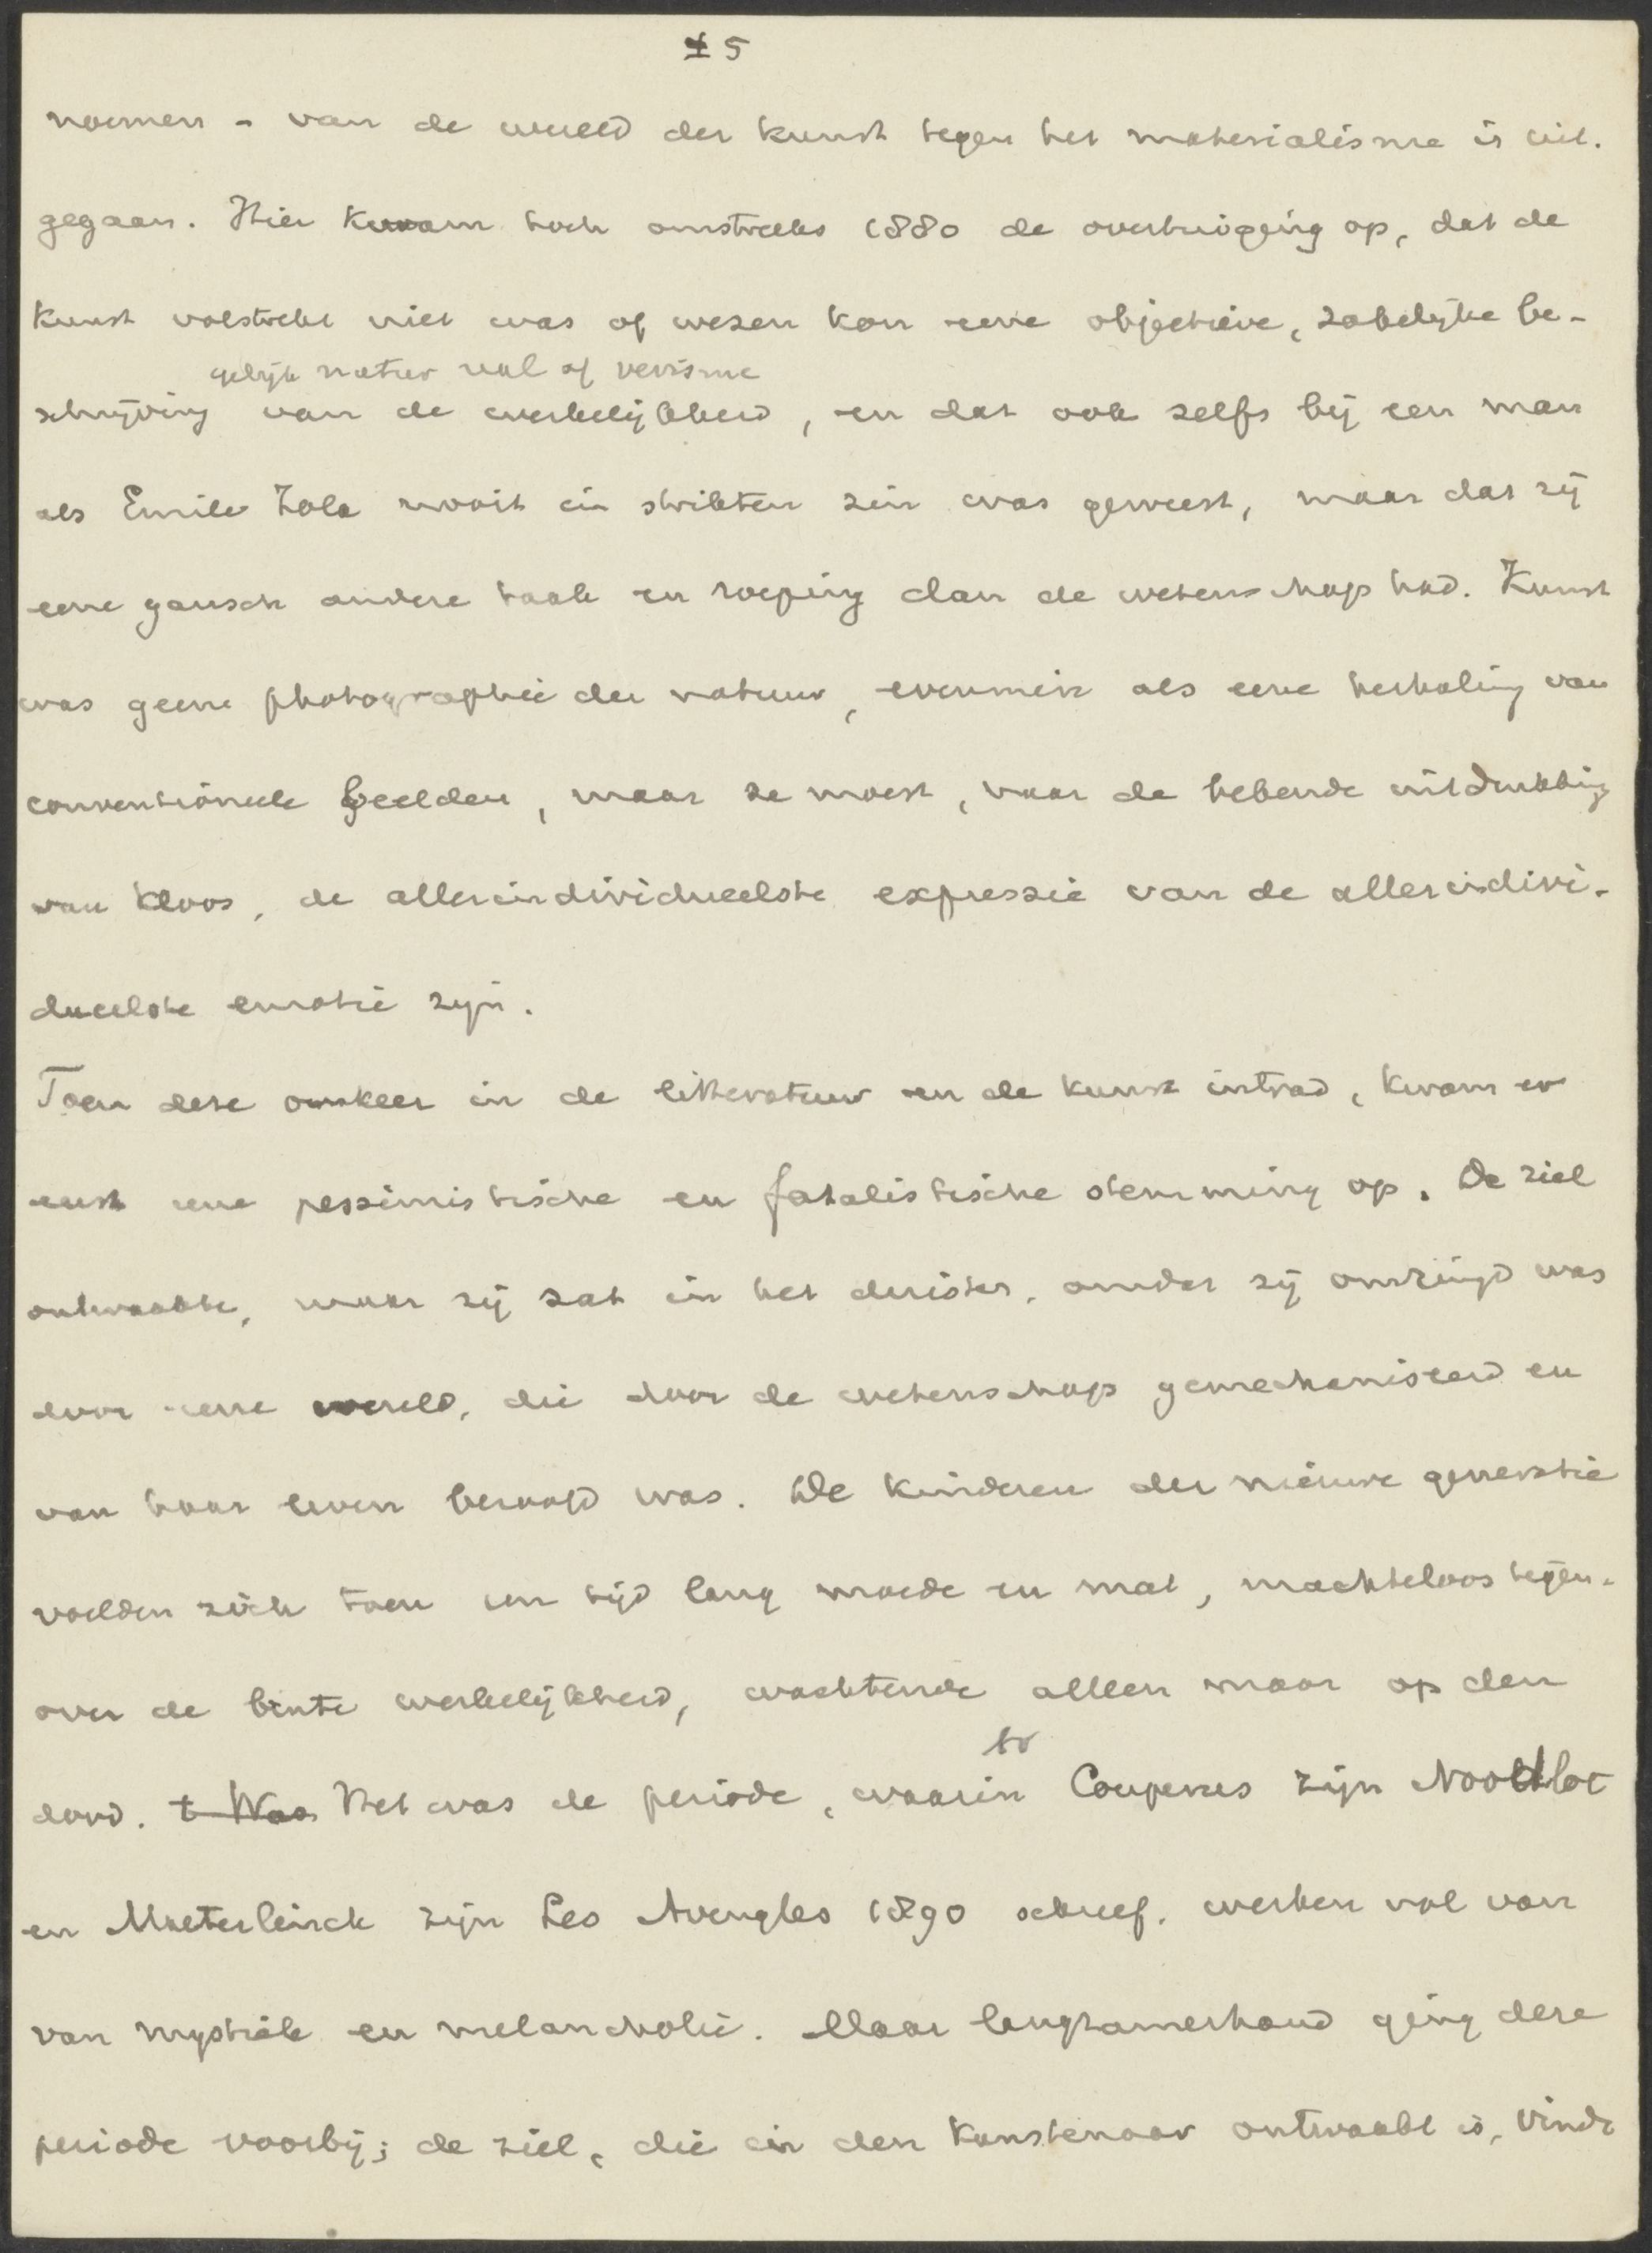 5
noemen - van de wereld der kunst tegen het materialisme is uit-
gegaan. Hier kwam toch omstreeks 1880 de overtuiging op, dat de
kunst volstrekt niet was of wezen kon eene objectieve, zakelijke be-
gelijk natur of verisme
schrijving van de werkelijkheid, en dat ook zelfs bij een man
als Emile Zola nooit in strikten zin was geweest, maar dat zij
eene gansch andere taak en roeping dan de wetenschap had. Kunst
was geene photographie der natuur, evenmin als eene herhaling van
conventioneele beelden, maar ze moest, naar de bekende uitdrukking
van Kloos, de allerindividueelste expressie van de allerindivi-
dueelste emotie zijn.
Toen deze omkeer in de litteratuur en de kunst intrad, kwam er
eerst eene pessimistische en fatalistische stemming op. De ziel
ontwaakte, maar zij zat in het duister, omdat zij omringd was
door eene wereld, die door de wetenschap gemechaniseerd en
van haar leven beroofd was. De kinderen der nieuwe generatie
voelden zich toen een tijd lang moede en mat, machteloos tegen-
over de brute werkelijkheid, wachtende alleen maar op den
dood. t Was Het was de periode, waarin Couperus zijn Noodlot
en Maeterlinck zijn Les Aveugles 1890 schreef, werken vol van
van mystiek en melancholie. Maar langzamerhand ging deze
periode voorbij; de ziel, die in den kunstenaar ontwaakt is, vindt